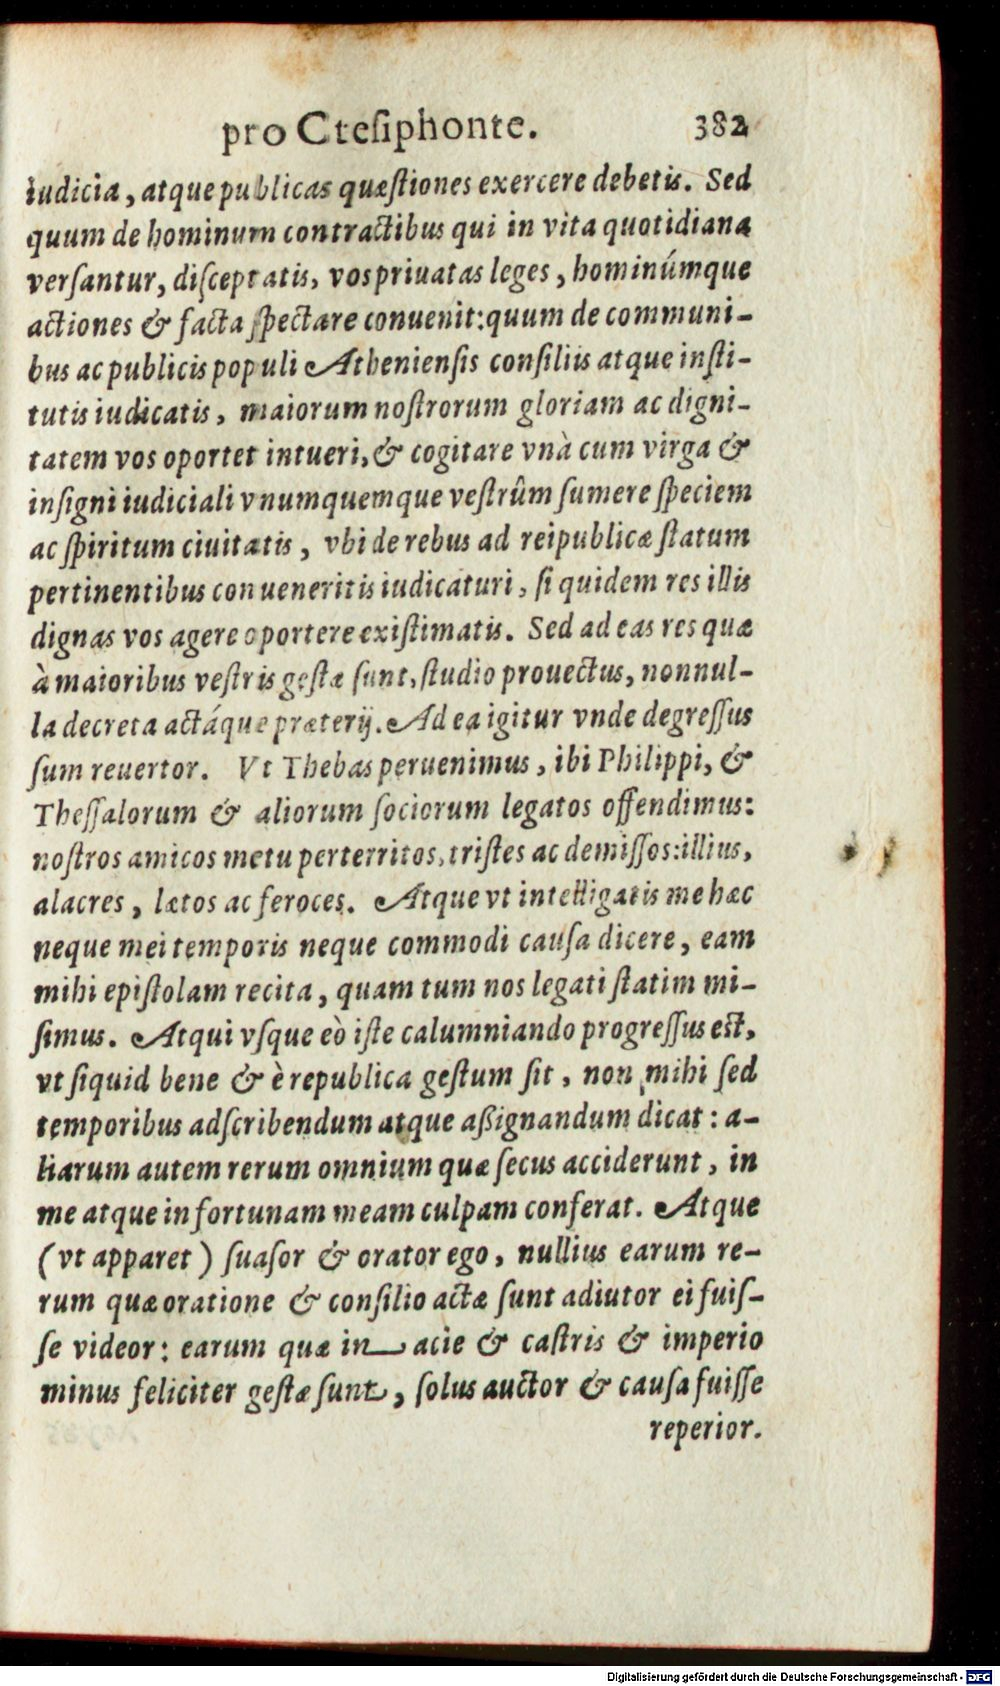 pro Ctesiphonte. 382
iudicia, atque publicas quæſtiones exercere debetis. Sed
quum de hominum contractibus qui in vita quotidiana
verſantur, diſceptatis, vos priuatas leges, hominúmque
actiones & facta ſpectare conuenit: quum de communi-
bus ac publicis populi Athenienſis conſiliis atque inſti-
tutis iudicatis, maiorum noſtrorum gloriam ac digni-
tatem vos oportet intueri, & cogitare vnà cum virga &
inſigni iudiciali vnumquemque veſtrûm ſumere ſpeciem
ac ſpiritum ciuitatis, vbi de rebus ad reipublicæ ſtatum
pertinentibus conueneritis iudicaturi, ſi quidem res illis
dignas vos agere oportere exiſtimatis. Sed ad eas res quæ
à maioribus veſtris geſtæ ſunt, ſtudio prouectus, nonnul-
la decreta actáque præterij. Ad ea igitur vnde degreſſus
ſum reuertor. Vt Thebas peruenimus, ibi Philippi, &
Theſſalorum & aliorum ſociorum legatos offendimus:
noſtros amicos metu perterritos, triſtes ac demiſſos: illius,
alacres, lætos ac feroces. Atque vt intelligatis me hæc
neque mei temporis neque commodi cauſa dicere, eam
mihi epiſtolam recita, quam tum nos legati ſtatim mi-
ſimus. Atqui vſque eò iſte calumniando progreſſus eſt,
vt ſiquid bene & è republica geſtum ſit, non mihi ſed
temporibus adſcribendum atque aßignandum dicat: a-
liarum autem rerum omnium quæ ſecus acciderunt, in
me atque in fortunam meam culpam conferat. Atque
(vt apparet) ſuaſor & orator ego, nullius earum re-
rum quæ oratione & conſilio actæ ſunt adiutor ei fuiſ-
ſe videor: earum quæ in acie & caſtris & imperio
minus feliciter geſtæ ſunt, ſolus auctor & cauſa fuiſſe
reperior.
Digitalisierung gefördert durch die Deutsche Forschungsgemeinschaft - DFG